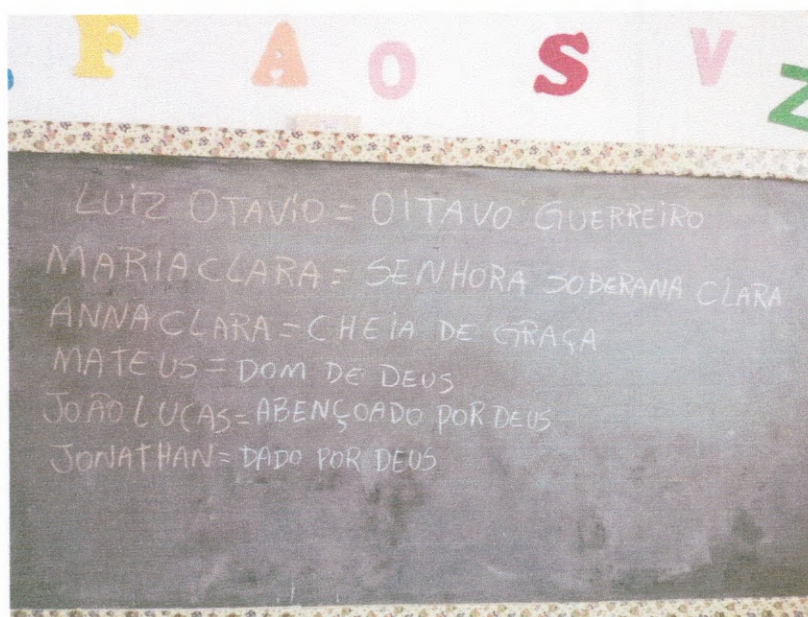 F A O S V Z
LUIZ OTAVIO = OITAVO GUERREIRO
MARIA CLARA = SENHORA SOBERANA CLARA
ANNA CLARA = CHEIA DE GRAÇA
MATEUS = DOM DE DEUS
JOÃO LUCAS = ABENÇOADO POR DEUS
JONATHAN = DADO POR DEUS